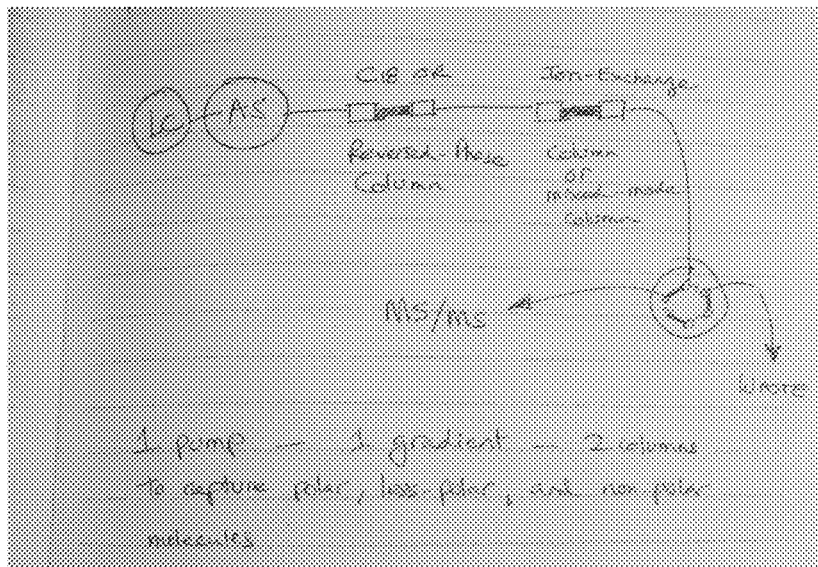 LC
AS
C18 OR
Reversed-Phase
Column
Ion-Exchange
Column
or
mixed-mode
Column
MS/MS
Waste
1 pump — 1 gradient — 2 columns
to capture polar, less-polar, and non polar
molecules